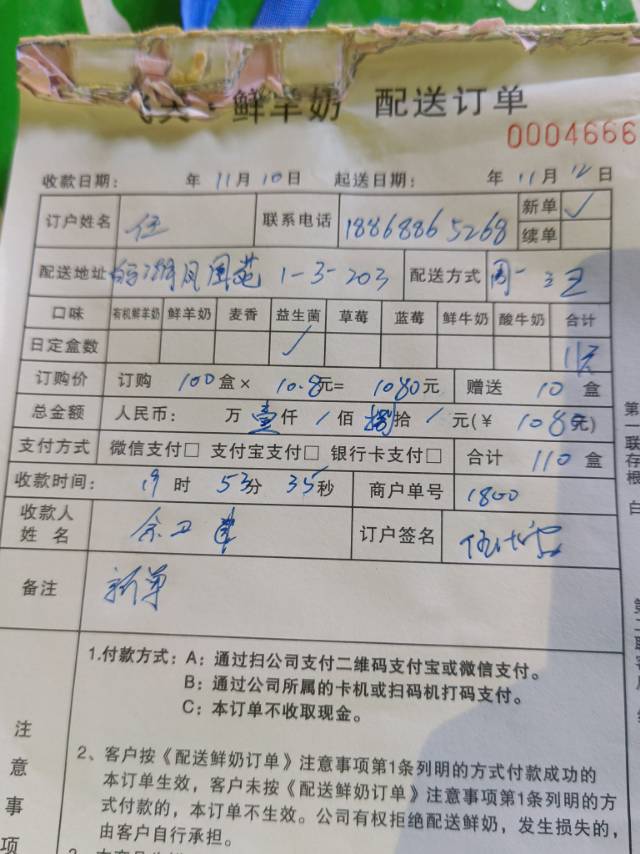 鲜羊奶 配送订单
0004666
收款日期： 年 11 月 10 日 起送日期： 年 11 月 12 日
订户姓名 伍 联系电话 18868865268 新单 ✓
续单
配送地址 凤凰苑 1-3-203 配送方式 周一
口味 有机鲜羊奶 鲜羊奶 麦香 益生菌 草莓 蓝莓 鲜牛奶 酸牛奶 合计
日定盒数 ✓
订购价 订购 100 盒× 10.8元= 1080 元 赠送 10 盒
总金额 人民币： 万 壹仟 / 佰 捌拾 / 元(￥ 1080元)
支付方式 微信支付□ 支付宝支付□ 银行卡支付□ 合计 110 盒
收款时间： 19 时 53分 35秒 商户单号 1800
收款人
姓 名 余卫 订户签名
备注 新单
1.付款方式：A：通过扫公司支付二维码支付宝或微信支付。
B：通过公司所属的卡机或扫码机打码支付。
C：本订单不收取现金。
2、客户按《配送鲜奶订单》注意事项第1条列明的方式付款成功的
本订单生效，客户未按《配送鲜奶订单》注意事项第1条列明的方
式付款的，本订单不生效。公司有权拒绝配送鲜奶，发生损失的，
由客户自行承担。
注
意
事
项
第
一
联
存
根
白